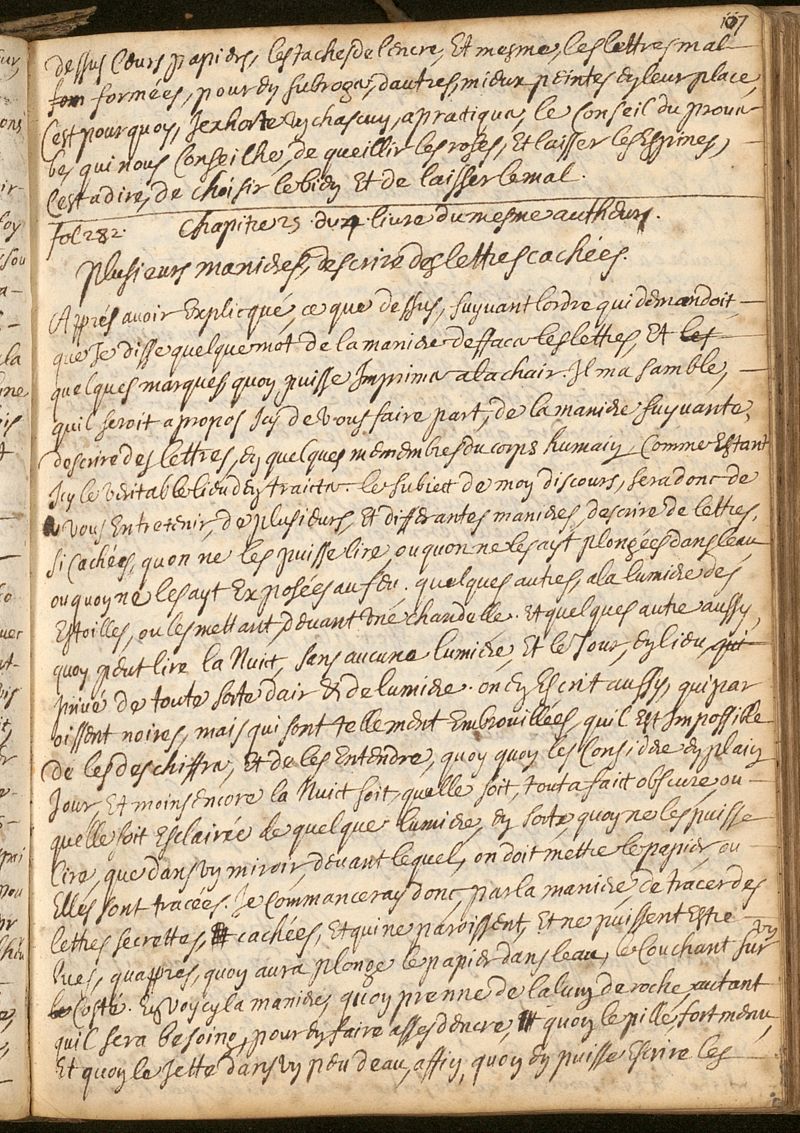 167
dessus leurs papiers, les taches de l'encre, Et mesme, les lettres mal
formées, pour en subroger, dautres, mieux peintes en leur place,
Cest pourquoy, Jexhorte un chascun, a pratiquer, le Conseil du prover-
be, qui nous Conseilhe, de queillir les roses, Et laisser les Espines,
Cest a dire, de choisir le bien Et de laisser le mal.
fol 282. Chapitre 23 du 4 livre du mesme autheur.
plusieurs manieres, descrire des lettres cachées.
Apprés avoir Explicqué, ce que dessus, suyuant lordre qui demandoit
que Je disse quelque mot de la maniere deffacer les lettres, Et les
quelques marques quon puisse Imprimer a la chair. Il ma samble,
quil seroit a propos Icy de vous faire part, de la maniere suyuante,
descrire des lettres, en quelques memembres du corps humain, Comme Estant
Icy le veritable lieu den traicter. le subiect de mon discours, sera donc de
vous Entretenir, de plusieurs, Et differantes manieres, descrire de lettres,
si Cachées, quon ne les puisse lire, ou quon ne les ayt plongées dans leau
ou quon ne les ayt Exposées au feu. quelques autres, a la lumiere des
Estoilles, ou les mettant, devant une chandelle. Et quelques autre aussy,
quon peut lire la Nuit, sans aucune lumiere, Et le Jour, en lieu, qui
privé de toute sorte dair & de lumiere. on en Escrit aussy, qui par
oissent noires, mais qui sont tellement Embrouillées, quil Est Impossible
de les deschiffrer, Et de les Entendre, quoy quon les Considere en plain
Jour, Et moins encore la Nuit soit, quelle soit, tout a fait obscure ou
quelle soit Esclairée de quelque lumiere, en sorte, quon ne les puisse
lire, que dans un miroir, devant lequel, on doit mettre le papier, ou
Elles sont tracées. Je Commanceray donc, par la maniere de tracer des
lettres secrettes, cachées, Et qui ne paroissent, Et ne puissent Estre
lues, quappres, quon aura plongé le papier dans leau, le Couchant sur un
Costé. En voycy la maniere, quon prenne de lalun de roche, autant
quil sera besoing, pour en faire asses dencre, quon le pille, fort menu,
Et quon le Jette dans un peu deau, affin, quon en puisse Escrire les